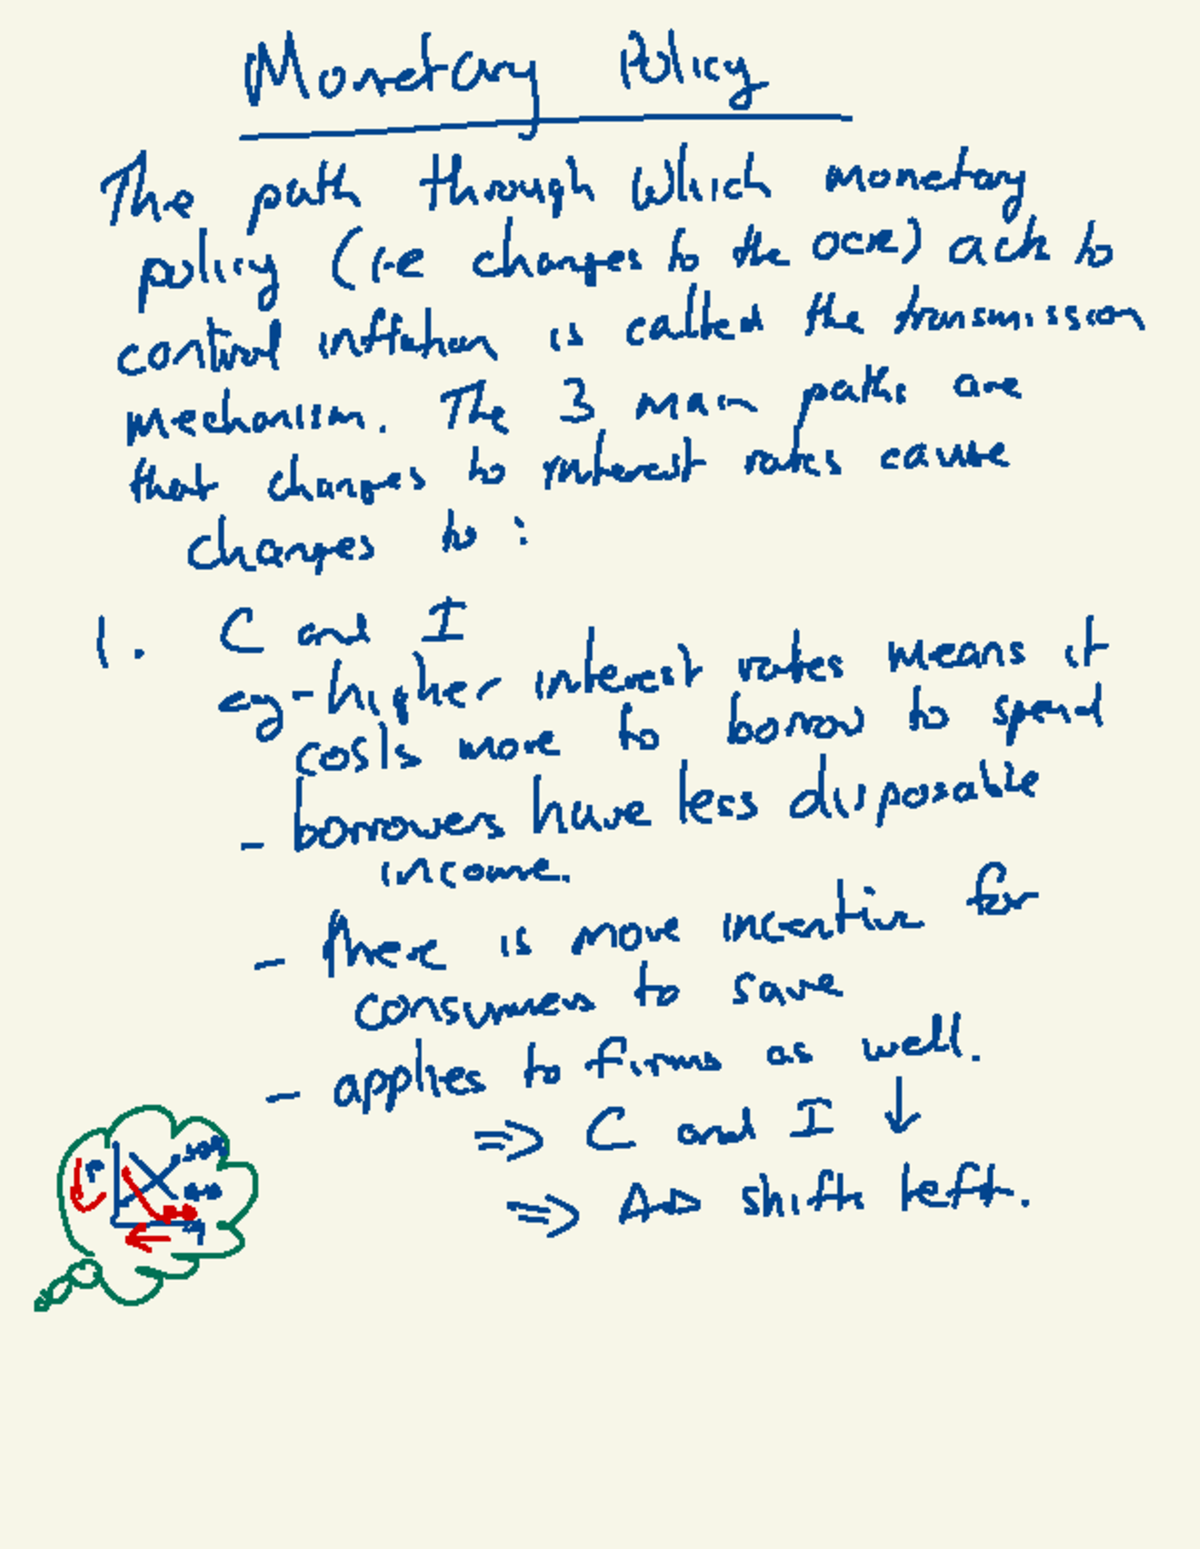 Monetary Policy
The path through which monetary
policy (i-e changes to the OCR) acts to
control inflation is called the transmission
mechanism. The 3 main paths are
that changes to interest rates cause
changes to :
1. C and I
eg - higher interest rates means it
costs more to borrow to spend
- borrowers have less disposable
income.
- there is more incentive for
consumers to save
- applies to firms as well.
⇒ C and I ↓
⇒ AD shifts left.
P